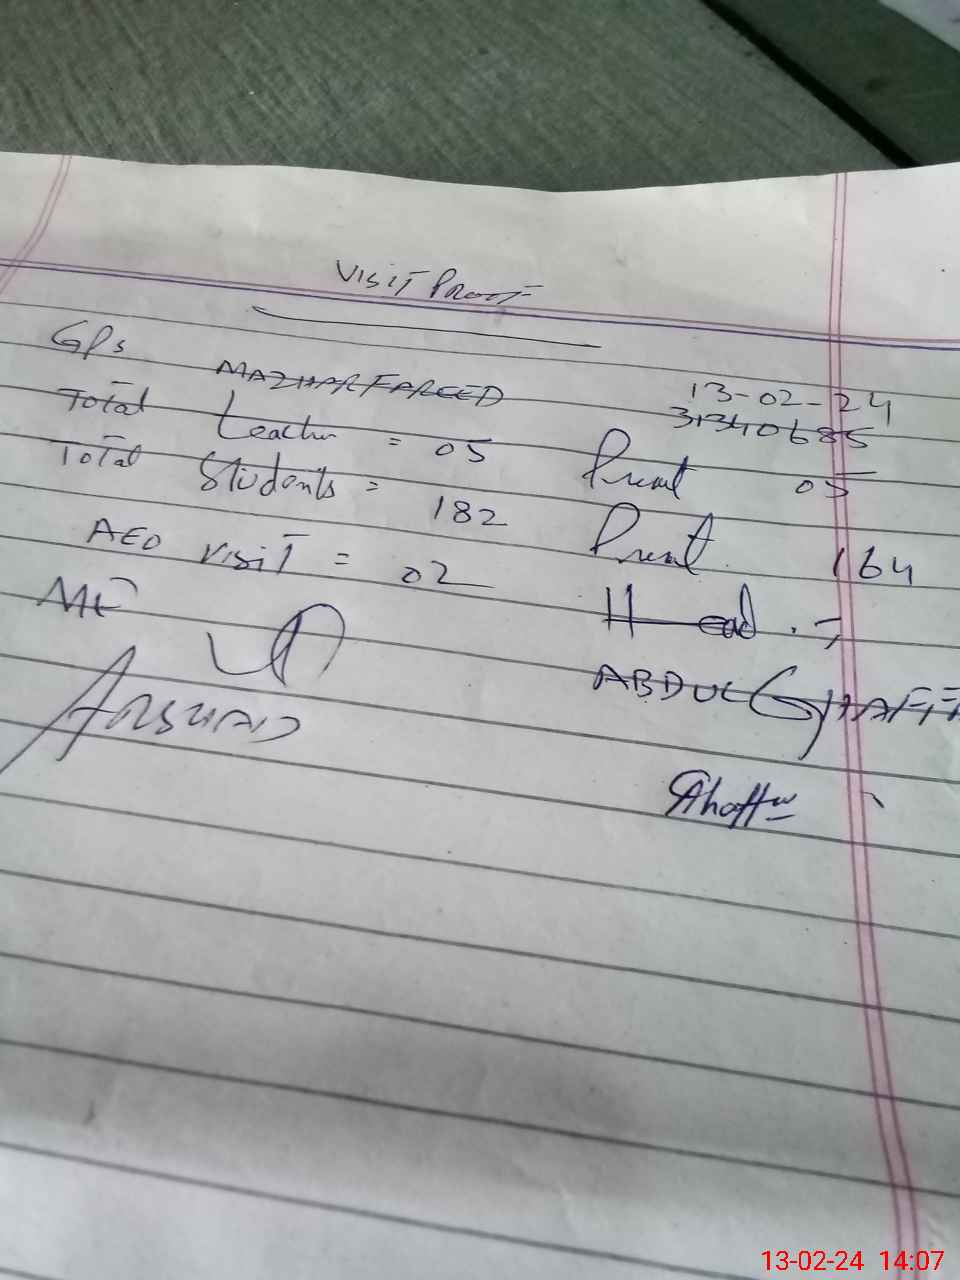 VISIT PROOF
GPS MAZHAR FAREED 13-02-24
31340685
Total teacher = 05 Present 05
Total Students = 182 Present 164
AEO visit = 02 Head :-
ABDUL GHAFFA
ARSHAD
Ghaffar
13-02-24 14:07